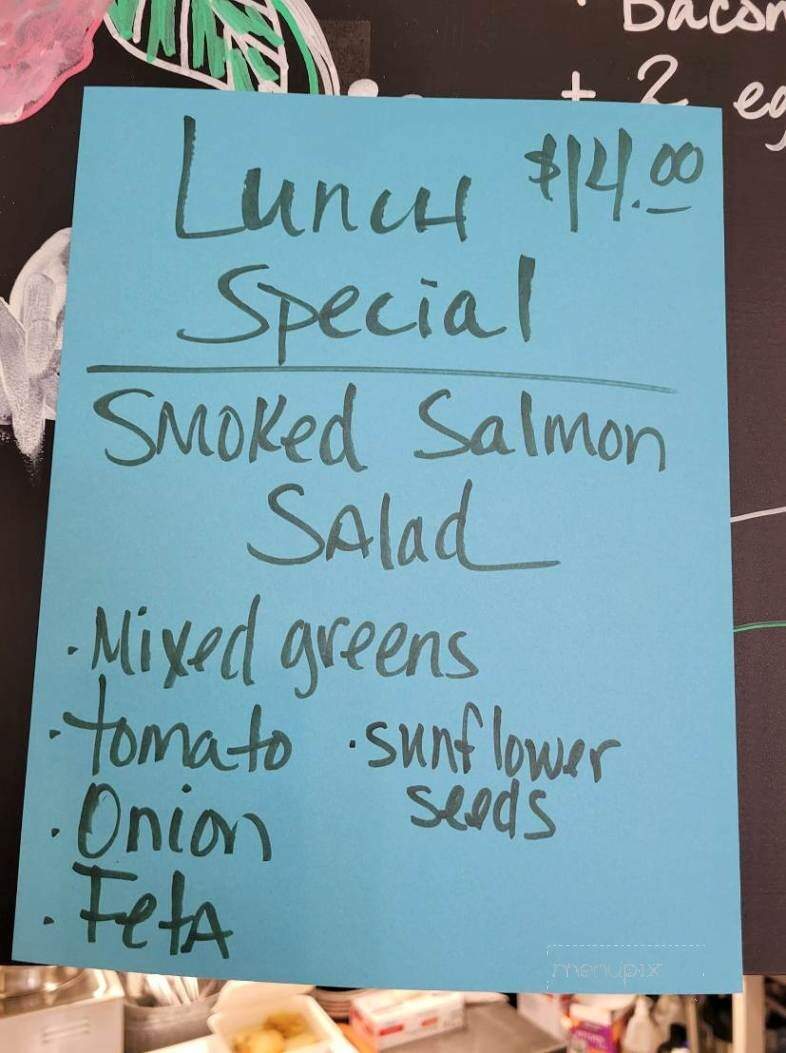 Bacon
+ 2 eg
Lunch $14.00
Special
Smoked Salmon
Salad
• Mixed greens
• tomato • sunflower
seeds
• Onion
• Feta
menupix